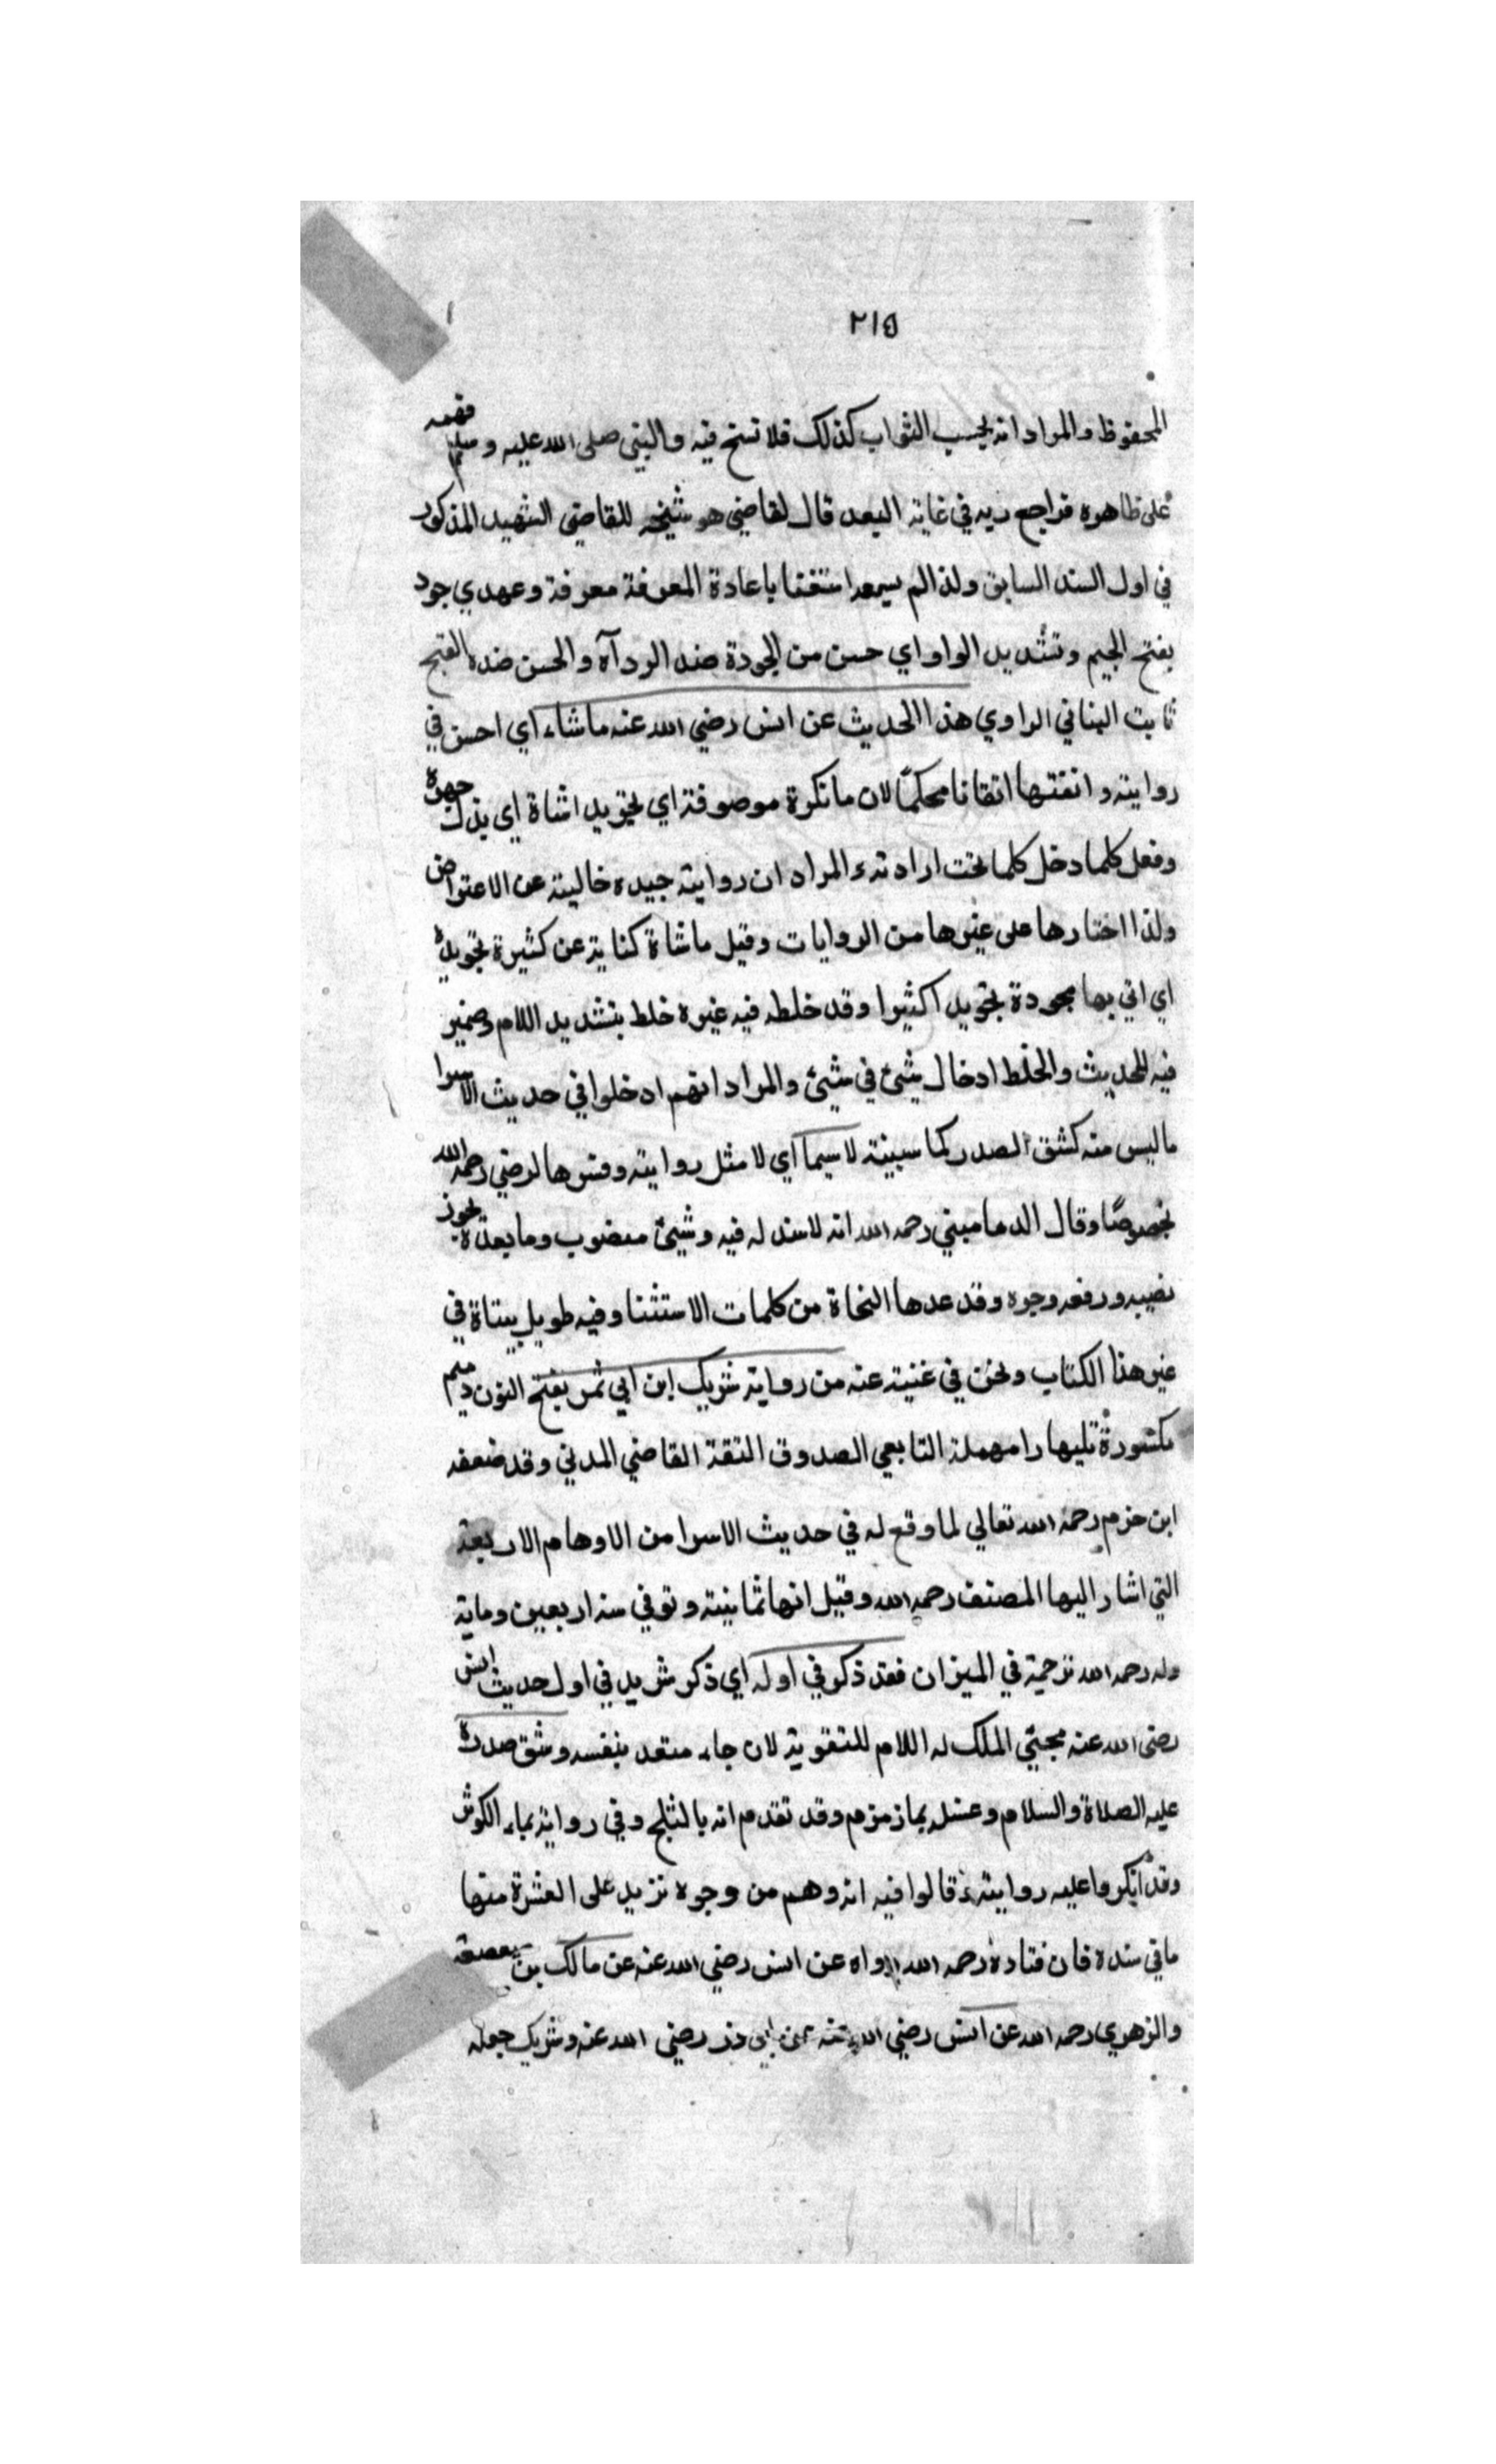 ٢١٥
المحفوظ والمراد انه يحسب الثواب كذلك فلا نسخ فيه والنبي صلى الله عليه وسلم فهمه
على ظاهره فراجع ربه في غاية البعد قال لقاضي هو شيخه للقاضي الشهيد المذكور
في اول السند السابق ولذا لم يسمه استغنا باعادة المعرفة معرفة وعهدي جود
بفتح الجيم وتشديد الواو اي حسن من الجودة ضد الردآة والحسن ضده القبح
ثابت البناني الراوي هذا الحديث عن انس رضي الله عنه ماشاء اي احسن في
روايته واتقنها اتقانا محكمًا لان ما نكرة موصوفة اي تجويد اشاة اي بذل جهده
وفعل كلما دخل كلما تحت ارادته والمراد ان روايته جيده خالية عن الاعتراض
ولذا اختارها على غيرها من الروايات وقيل ماشاة كناية عن كثيرة تجويده
اي اتي بها مجودة تجويد اكثيرا وقد خلطه فيه غيره خلط بتشديد اللام وضمير
فيه للحديث والخلط ادخال شيئ في شيئ والمراد انهم ادخلوا في حديث الاسرا
ماليس منه كشق الصدر كما سبينة لاسيما اي لا مثل روايته وفسرها لرضي رحمه الله
بخصوصًا وقال الدماميني رحمه الله انه لاسند له فيه وشيئ منصوب وما بعدة يجوز
نصبه ورفعه وجره وقد عدها النحاة من كلمات الاستثنا وفيه طويل بيناة في
غير هذا الكتاب ونحن في غنية عنه من رواية شريك ابن ابي نمر بفتح النون وميم
مكسورة تليها را مهملة التابعي الصدوق الثقة القاضي المدني وقد ضعفه
ابن حزم رحمه الله تعالي لما وقع له في حديث الاسرا من الاوهام الاربعة
التي اشار اليها المصنف رحمه الله وقيل انها ثمانية وتوفي سنة اربعين وماية
وله رحمه الله ترجمة في الميزان فقد ذكر في اوله اي ذكر شريد في اول حديث انس
رضي الله عنه مجيئي الملك له اللام للتقوية لان جاء متعد بنفسه وشق صدره
عليه الصلاة والسلام وغسله بماء زمزم وقد تقدم انه بالثلج وفي رواية بماء الكوثر
وقد انكروا عليه روايته وقالوا فيه انه وهم من وجوه تزيد على العشرة منها
ما في سنده فان قتادة رحمه الله رواه عن انس رضي الله عنه عن مالك بن صعصعة
والزهري رحمه الله عن انس رضي الله عنه عن ابي ذر رضي الله عنه وشريك جعله